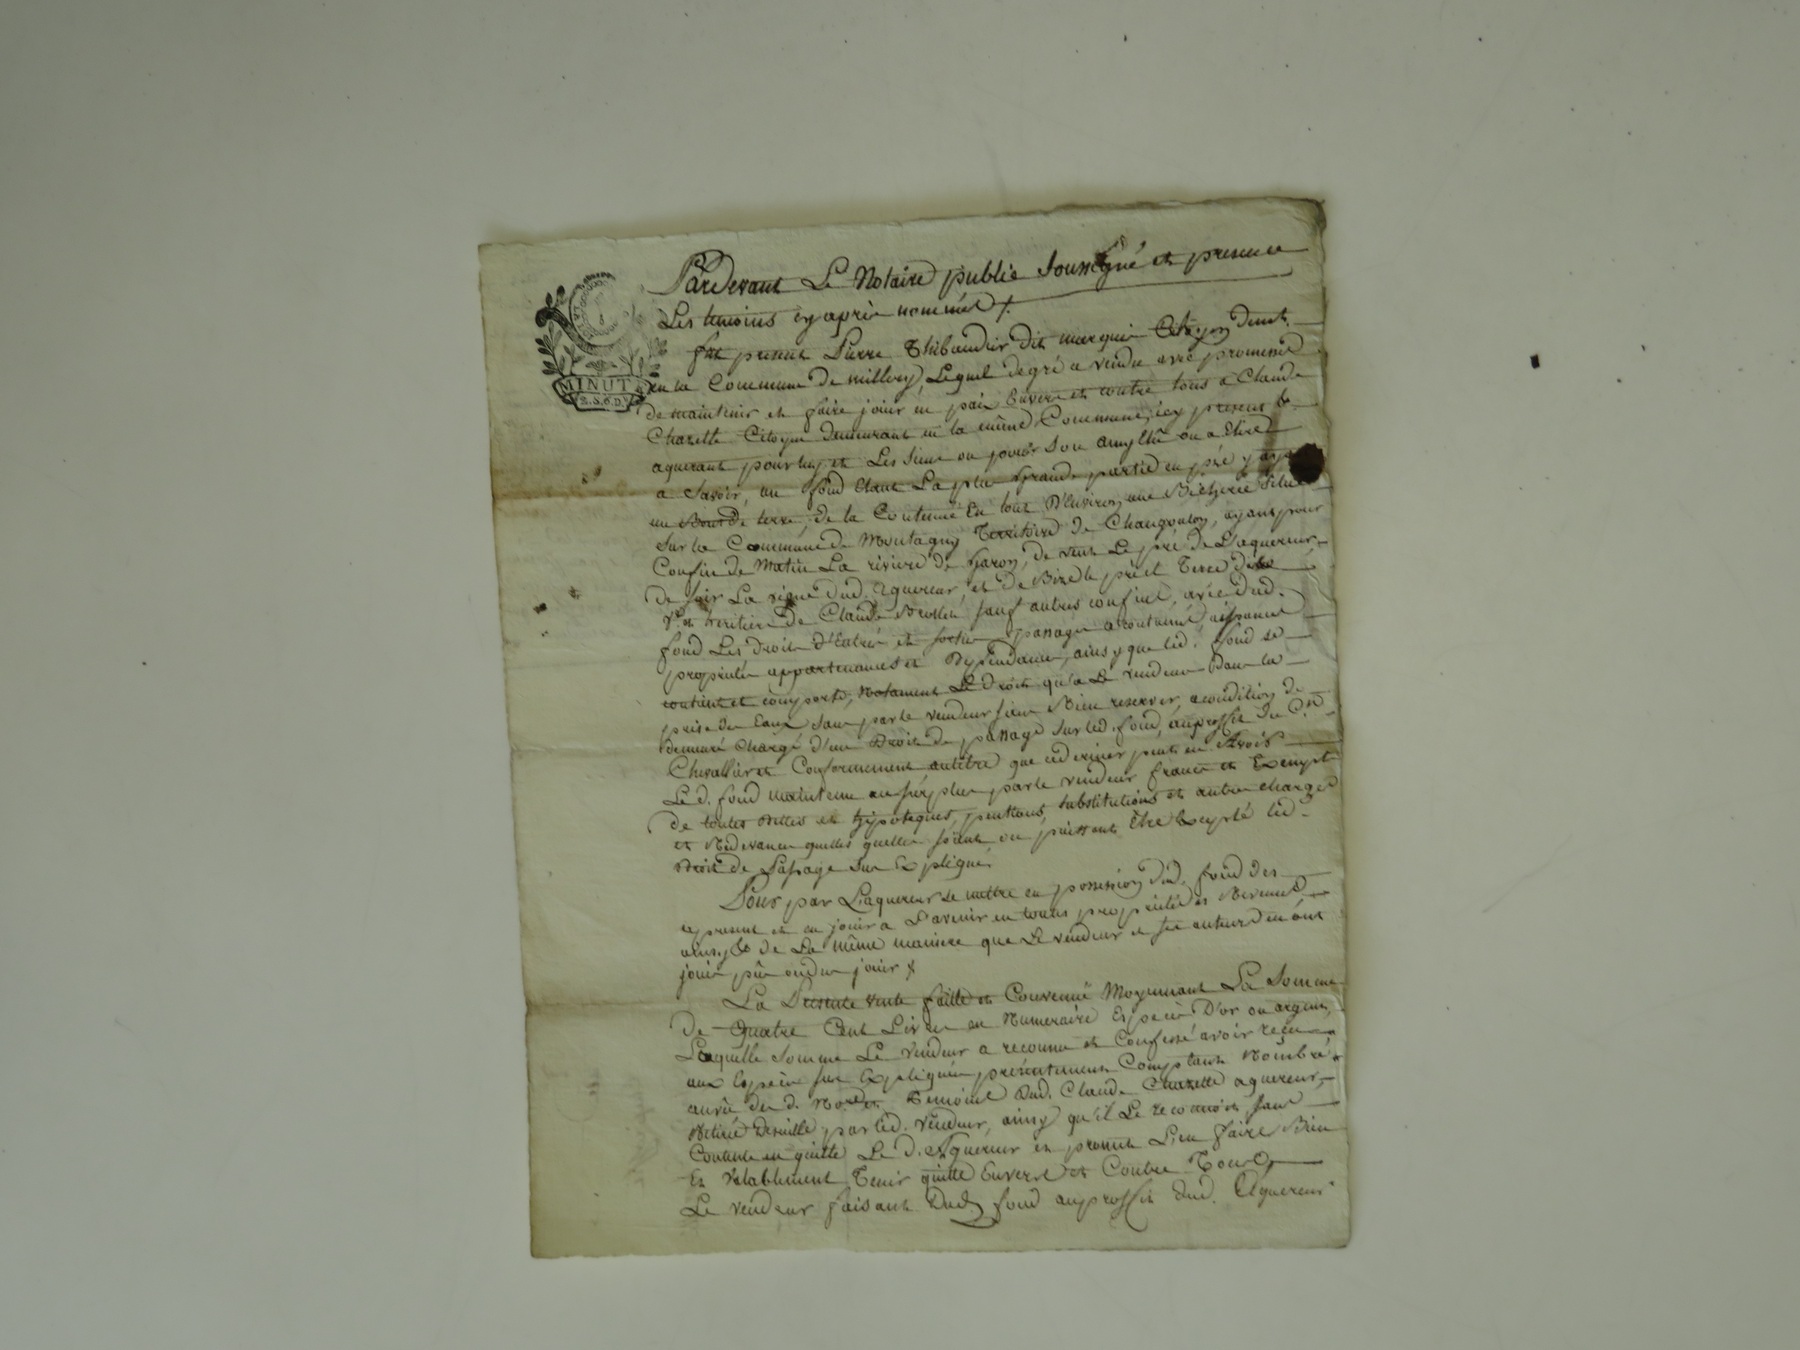 MINUT.
2.S.6.D.
Pardevant Le Notaire public Soussigné et presence
Les temoins cy après nommés
fut present Pierre Thibaudier dit marquis Citoyen demt.
en la Commune de millery, Lequel de gré a vendu avec promesse
de maintenir et faire jouir en paix Envers et contre tous a Claude
Chazette Citoyen demeurant en la même Commune, icy present &
aquerant pour luy et Les Siens ou pour Son amy Elû ou a Elire
a Savoir, un fond Etant La plus grande partie en pré y ayant
un Bout de terre, de la Contenue En tout D'Environ une Bicherée Situé
Sur la Commune de Montagny Territoire de Changoulon, ayant pour
Confin de Matin La riviere de Garon, de vent Le pré de L'aquereur
de soir La vigne dud. aquereur, et de Bize le pré et Terre de la
Ve. et heritiers de Claude sauf autres confins, avec dud.
fond Les Droits D'Entrée et sortie passage acoutumé, aisances
propriétés appartenances et Dependances, ainsy que led. fond se
contient et comporte, Notament Le Droit qu'a Le vendeur Dans la
prise des Eaux sans par le vendeur s'en Rien reserver, a condition de
demeuré Chargé d'un Droit de passage Sur led. fond, au proffit du Cn.
Chevallier et Conformement au titre que ce dernier peut en Avoir
Le d. fond maintenu au surplus par le vendeur franc et Exempt
de toutes Dettes et hypoteques, pentions, substitutions et autres charges
et Redevances quelles quelles soient ou puissent être Excepté led.
Droit de Passage Sus Expliqué.
Pour par L'aquereur se mettre en possession dud. fond des
a present et en jouir a L'avenir en toutes propriétés et Revenus,
ainsy & de La même maniere que Le vendeur et ses auteurs en ont
jouis pû ou du jouir
La Presente vente faitte et Convenuë Moyennant La Somme
De Quatre Cent Livres en Numeraire Especes D'or ou argent,
Laquelle Somme Le vendeur a reconnu et Confessé avoir reçu
aux Especes sus Expliquées presentement Comptant Nombré
au vû des d. Nore. et Temoins Dud. Claude Chazette aquereur,
Retirée par led. vendeur, ainsy qu'il Le reconnoit, dont
Content en quitte Le d. aquereur et promet L'en faire Bien
Et Valablement Tenir quitte Envers et Contre Tous
Le vendeur faisant Dud. fond au proffit dud. Aquereur